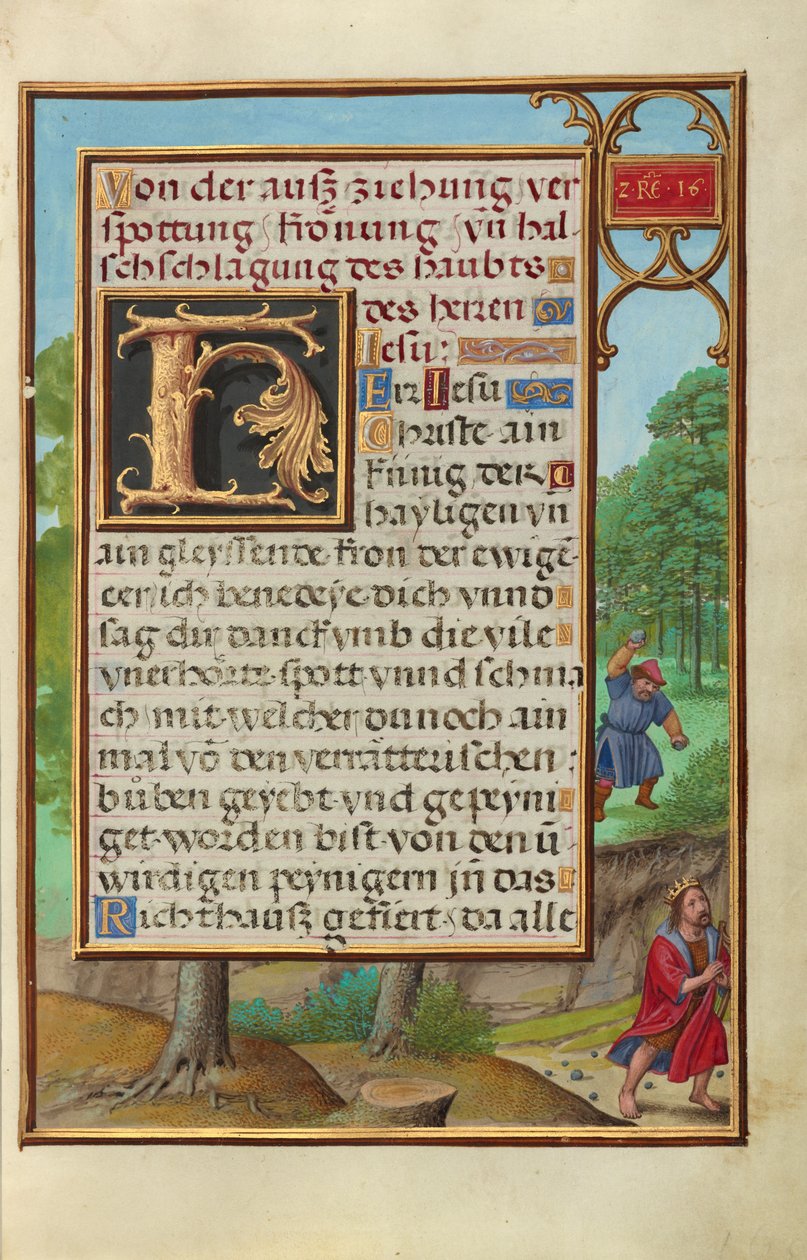 Von der auſz ziehung ver
ſpottung / krönung / vn̄ hal-
ſchſchlagung des haubts
des herren
Ieſu:
HEir Ieſu
Chriſte ain
künig der
hayligen vn̄
ain gleyſſende kron der ewigē
eer ich benedeye dich vnnd
ſag dir danck vmb die vile
vnerhörte ſpott vnnd ſchma
ch mit welcher du noch ain
mal vō den verrätteriſchen
bůben geyebt vnd gepeyni
get worden biſt von den ū-
wirdigen peynigern jn̄ das
Richthauſz gefiert / da alle
·2·RE·16·